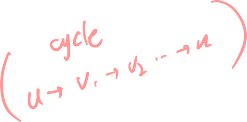 cycle
(u → v₁ → v₂ ... → u)